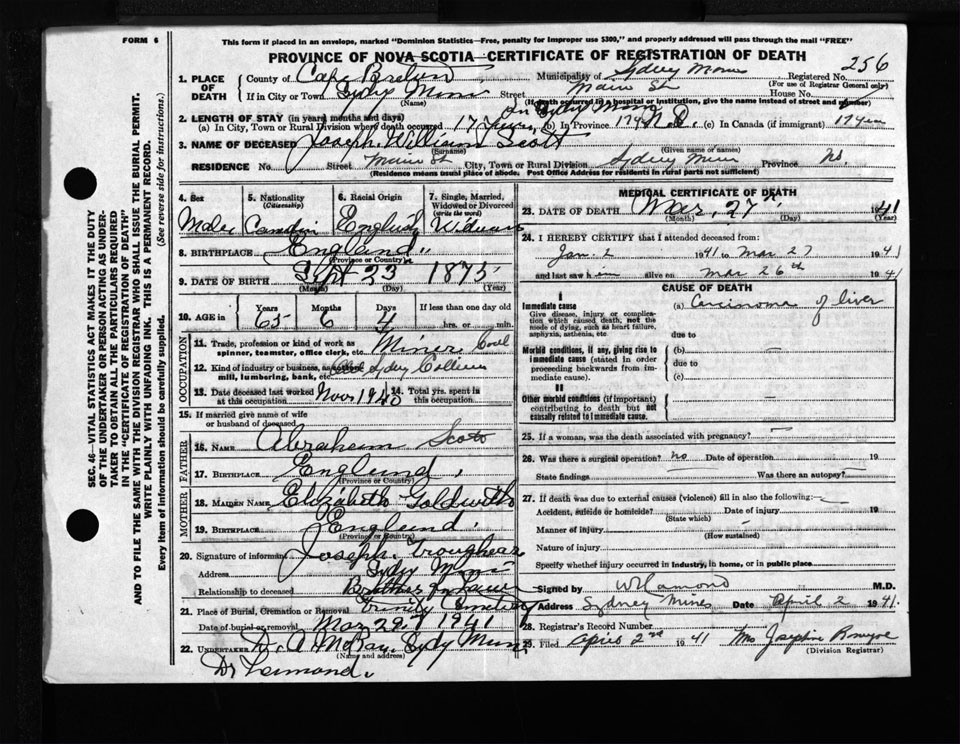 FORM 6
This form if placed in an envelope, marked "Dominion Statistics—Free, penalty for improper use $300," and properly addressed will pass through the mail "FREE"
PROVINCE OF NOVA SCOTIA—CERTIFICATE OF REGISTRATION OF DEATH
256
SEC. 46—VITAL STATISTICS ACT MAKES IT THE DUTY
OF THE UNDERTAKER OR PERSON ACTING AS UNDER-
TAKER TO OBTAIN ALL THE PARTICULARS REQUIRED
IN THE "CERTIFICATE OF REGISTRATION OF DEATH"
AND TO FILE THE SAME WITH THE DIVISION REGISTRAR WHO SHALL ISSUE THE BURIAL PERMIT.
WRITE PLAINLY WITH UNFADING INK. THIS IS A PERMANENT RECORD.
Every item of information should be carefully supplied. (See reverse side for instructions.)
1. PLACE OF DEATH
County of Cape Breton Municipality of Sydney Mines Registered No.
(For use of Registrar General only)
If in City or Town Sydney Mines Street Main St House No.
(Name) (If death occurred in a hospital or institution, give the name instead of street and number)
2. LENGTH OF STAY (in years, months and days) In Sydney Mines
(a) In City, Town or Rural Division where death occurred 17 years (b) In Province N.S. (c) In Canada (if immigrant)
3. NAME OF DECEASED Joseph William Scott
(Surname) (Given name or names)
RESIDENCE No. Street Main St City, Town or Rural Division Sydney Mines Province NS.
(Residence means usual place of abode. Post Office Address for residents in rural parts not sufficient)
4. Sex
Male
5. Nationality
(Citizenship)
Canadian
6. Racial Origin
English
7. Single, Married, Widowed or Divorced
(write the word)
Widower
8. BIRTHPLACE England
(Province or Country)
9. DATE OF BIRTH Sept 23 1875
(Month) (Day) (Year)
10. AGE in Years Months Days If less than one day old
65 6 4 hrs. or min.
OCCUPATION
11. Trade, profession or kind of work as Miner Coal
spinner, teamster, office clerk, etc.
12. Kind of industry or business, as Sydney Collieries
mill, lumbering, bank, etc.
13. Date deceased last worked at this occupation Nov 1940
14. Total yrs. spent in this occupation
15. If married give name of wife
or husband of deceased
FATHER
16. NAME Abraham Scott
17. BIRTHPLACE England
(Province or Country)
MOTHER
18. MAIDEN NAME Elizabeth
19. BIRTHPLACE England
(Province or Country)
20. Signature of informant Joseph Troughear
Address Sydney Mines
Relationship to deceased Brother in Law
21. Place of Burial, Cremation or Removal Trinity Cemetery
Date of burial or removal Mar 29th 1941
22. UNDERTAKER A McRay Sydney Mines
(Name and address)
MEDICAL CERTIFICATE OF DEATH
23. DATE OF DEATH Mar. 27th 1941
(Month) (Day) (Year)
24. I HEREBY CERTIFY that I attended deceased from:
Jan. 2 1941 to Mar 27 1941
and last saw him alive on Mar 26th 1941
CAUSE OF DEATH
Immediate cause
Give disease, injury or complication which caused death, not the mode of dying, such as heart failure, asphyxia, asthenia, etc.
(a) Carcinoma of liver
due to
Morbid conditions, if any, giving rise to immediate cause (stated in order proceeding backwards from immediate cause).
(b) —
due to
(c)
Other morbid conditions (if important) contributing to death but not causally related to immediate cause. —
25. If a woman, was the death associated with pregnancy? —
26. Was there a surgical operation? no Date of operation 19
State findings Was there an autopsy? —
27. If death was due to external causes (violence) fill in also the following:
Accident, suicide or homicide? Date of injury 19
(State which)
Manner of injury
(How sustained)
Nature of injury
Specify whether injury occurred in industry, in home, or in public place
Signed by W Lamond M.D.
Address Sydney Mines Date April 2 1941.
28. Registrar's Record Number
29. Filed April 2nd 1941 Mrs Josephine
(Division Registrar)